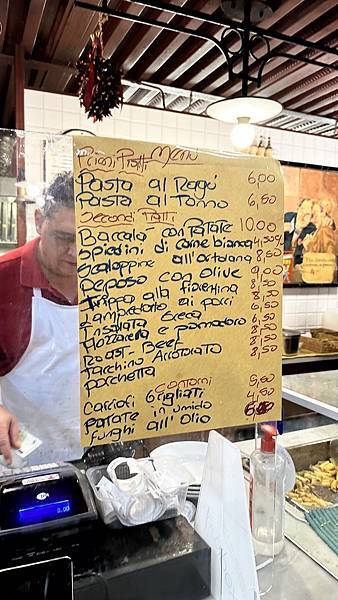 Primi Piatti Menù
Pasta al Ragù 6,00
Pasta al Tonno 6,50
Secondi Piatti
Baccalà con Patate 10.00
Spiedini di carne bianca 4,50
Scaloppine all'ortolana 8,50
Peposo con olive 9,00
Trippa alla fiorentina 8,50
Lampredotto ai porri 8,50
Insalata Greca 6,50
Mozzarella e pomodoro 6,50
Roast-Beef 8,50
Tacchino Arrotolato 8,50
porchetta 8,50
Contorni
Carciofi Grigliati 5,50
patate in umido 4,50
funghi all'olio
0.00